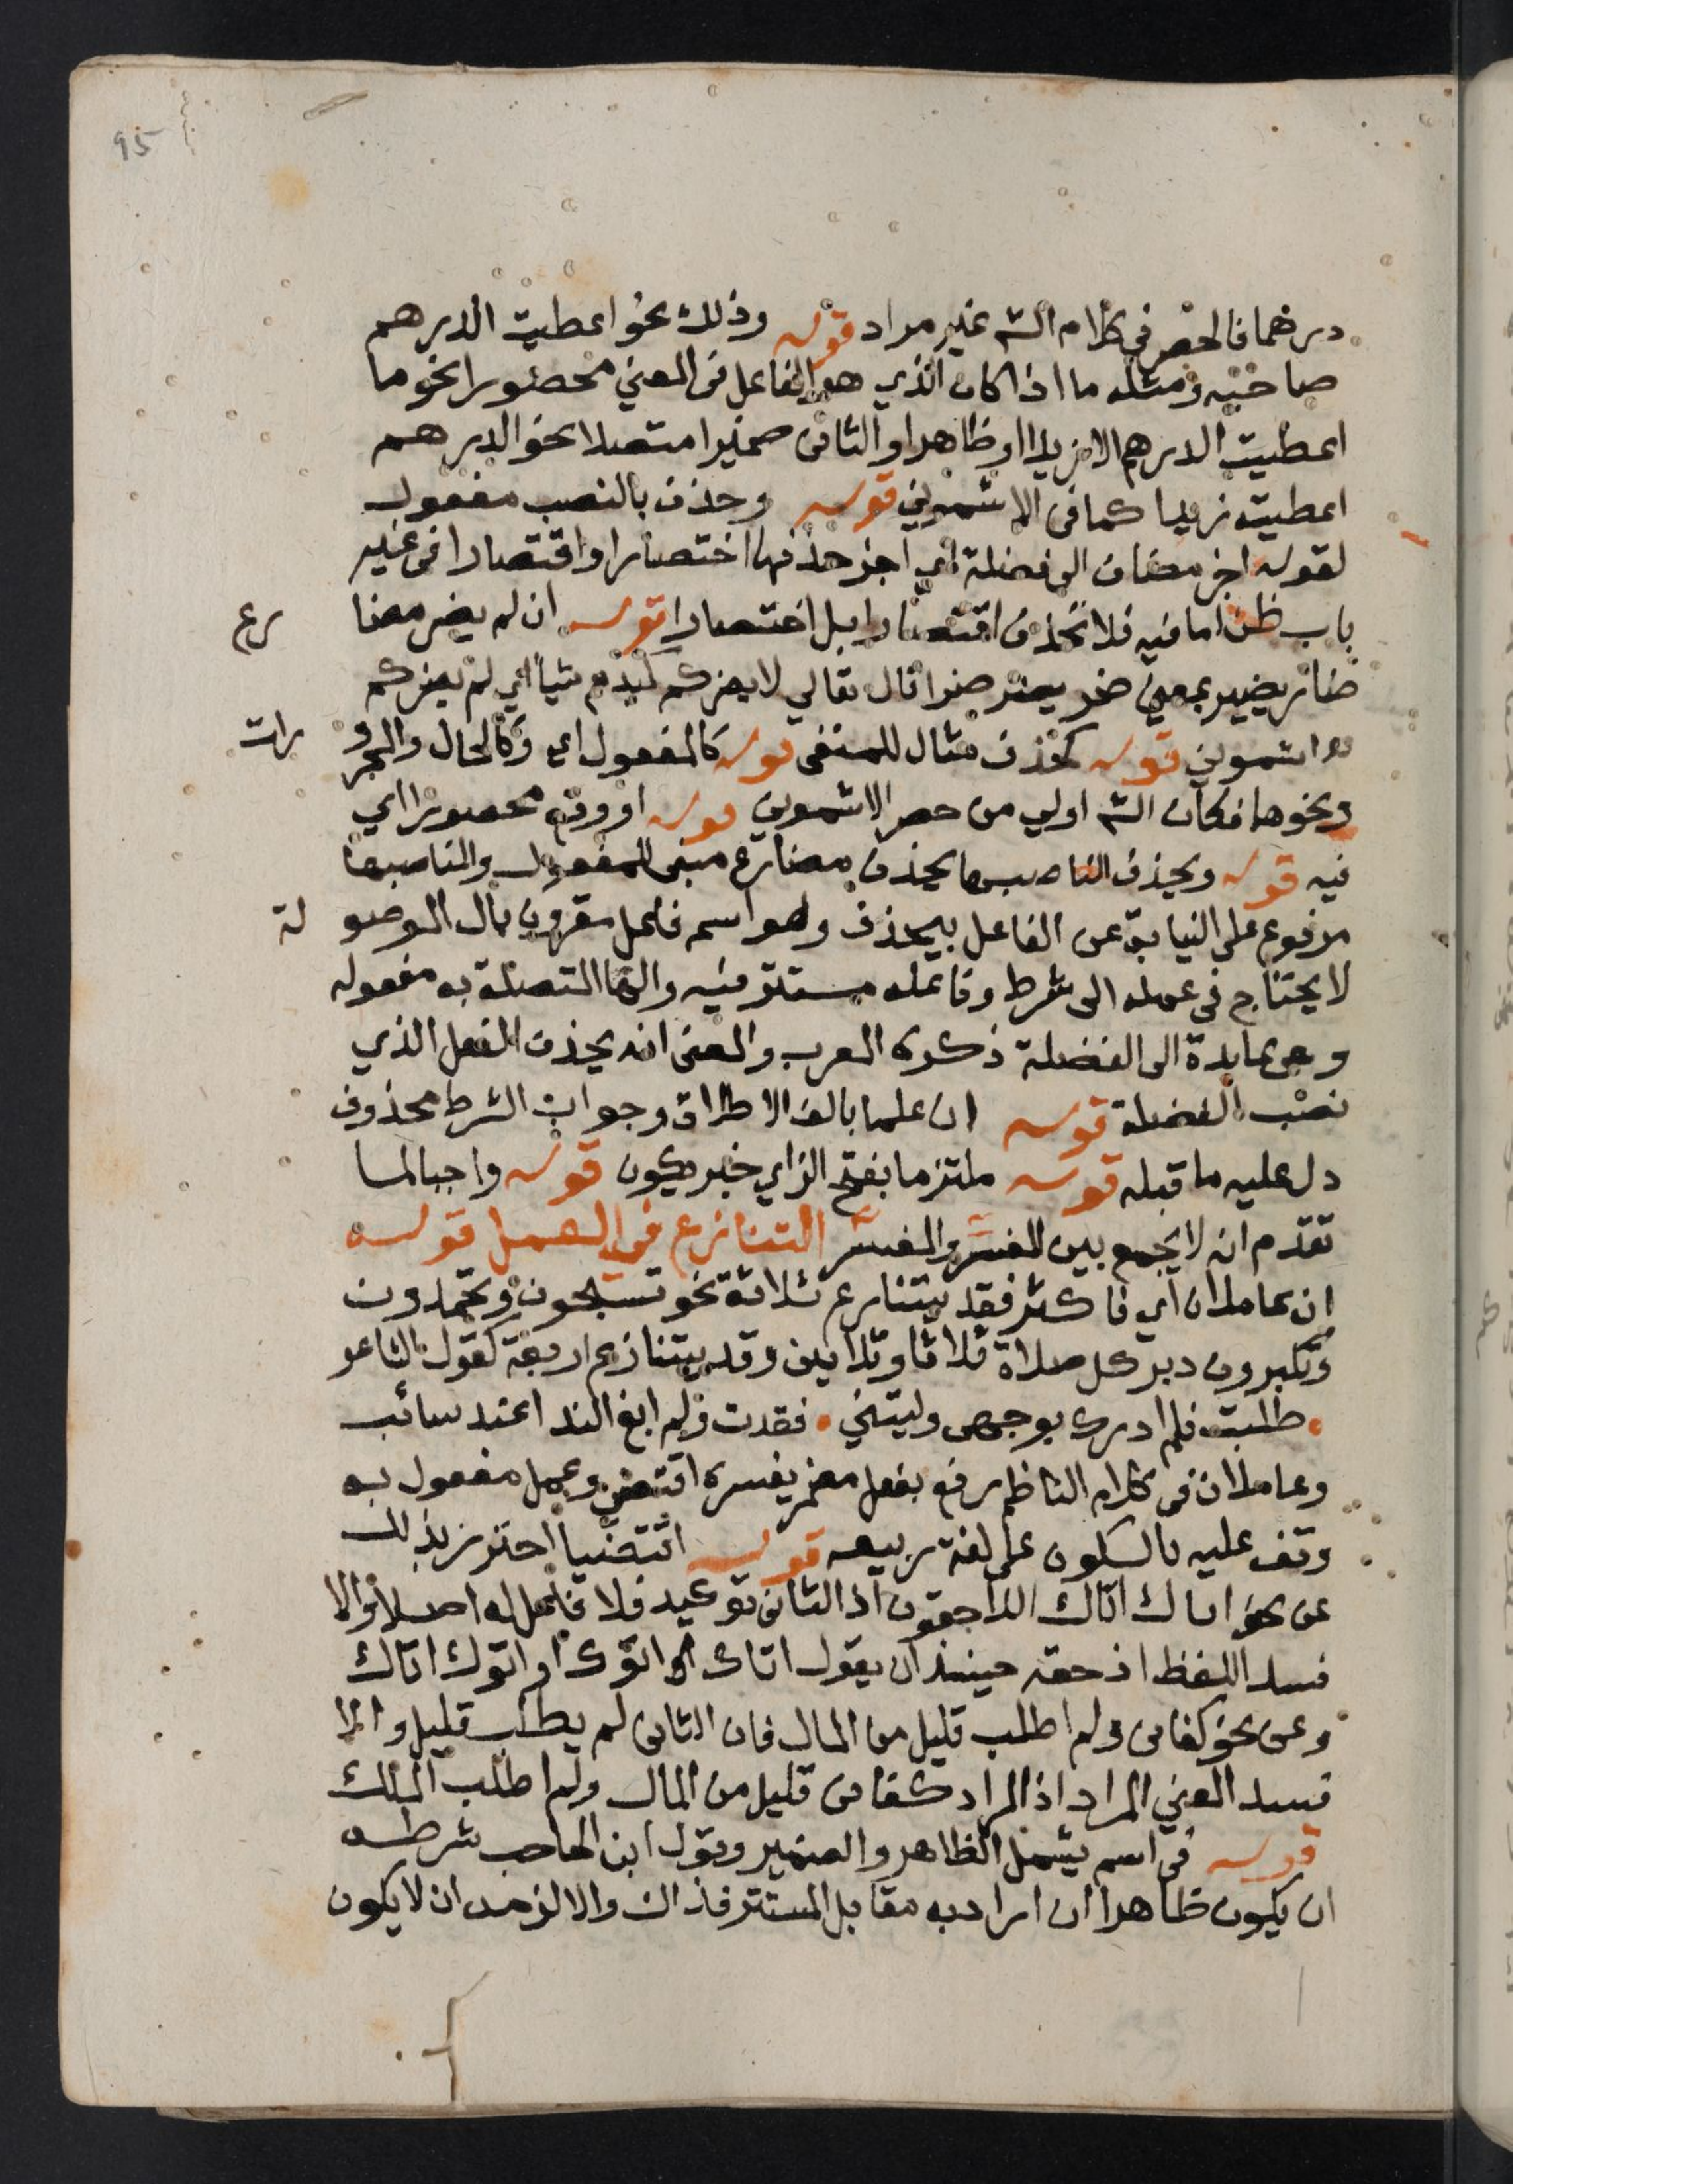 95
درهما فالحصر في كلام الشه غير مراد قوله وذلك نحو اعطيت الدرهم
صاحبه ومثله ما اذا كان الذي هو الفاعل فى المعني محصورا نحو ما
اعطيت الدرهم الا زيدا او ظاهرا والثانى ضميرا متصلا نحو الدرهم
اعطيته زيدا كما فى الاشموني قوله وحذف بالنصب مفعول
لقوله اجز مضاف الى فضلة اي اجز حذفها اختصارا واقتصارا فى غير
باب ظن اما فيه فلا تحذف اقتصارا بل اختصارا قوله ان لم يضر مضا رع
ضار يضير بمعني ضر يضر ضرا قال تعالي لا يضركم كيدهم شيأ اي لم يضركم
اشموني قوله كحذف مثال للمنفى قوله كالمفعول اي وكالحال والمجرو رات
ونحوها فكان الشه اولي من حصر الاشموني قوله او وقع محصورا اي
فيه قوله ويحذف الناصبها يحذف مضارع مبنى للمفعول والناصبها
مرفوع على النيابة عن الفاعل بيحذف وهو اسم فاعل مقرون بال الموصو لة
لا يحتاج في عمله الى شرط وفاعله مستتر فيه والها المتصلة به مفعوله
وهى عايدة الى الفضلة ذكره المعرب والمعنى انه يحذف الفعل الذي
نصب الفضلة قوله ان علما بالف الاطلاق وجواب الشرط محذوف
دل عليه ما قبله قوله ملتزما بفتح الزاي خبر يكون قوله واجبا لما
تقدم انه لا يجمع بين المفسر والمفسر التنازع في العمل قوله
ان عاملان اي فاكثر فقد يتنازع ثلاثة نحو تسبحون وتحمدون
وتكبرون دبر كل صلاة ثلاثا وثلاثين وقد يتنازع اربعة كقول الشاعر
طلبت فلم ادرك بوجهى وليتني فقدت ولم ابغ الندا عند سائب
وعاملان فى كلام الناظم رفع بفعل مضمر يفسره اقتضى وعمل مفعول به
وقف عليه بالسكون على لغة ربيعه قوله اقتضيا احترز بذلك
عن نحو اتاك اتاك اللاحقون اذ الثانى توكيد فلا فاعل له اصلا والا
فسد اللفظ اذ حقه حينئذ ان يقول اتاك اتوك او اتوك اتاك
وعن نحو كفانى ولم اطلب قليل من المال فان الثانى لم يطلب قليل والا
فسد المعني المراد اذ المراد كفانى قليل من المال ولم اطلب الملك
قوله فى اسم يشمل الظاهر والضمير وقول ابن الحاجب شرطه
ان يكون ظاهرا ان اراد به مقابل المستتر فذاك والا لزمه ان لا يكون